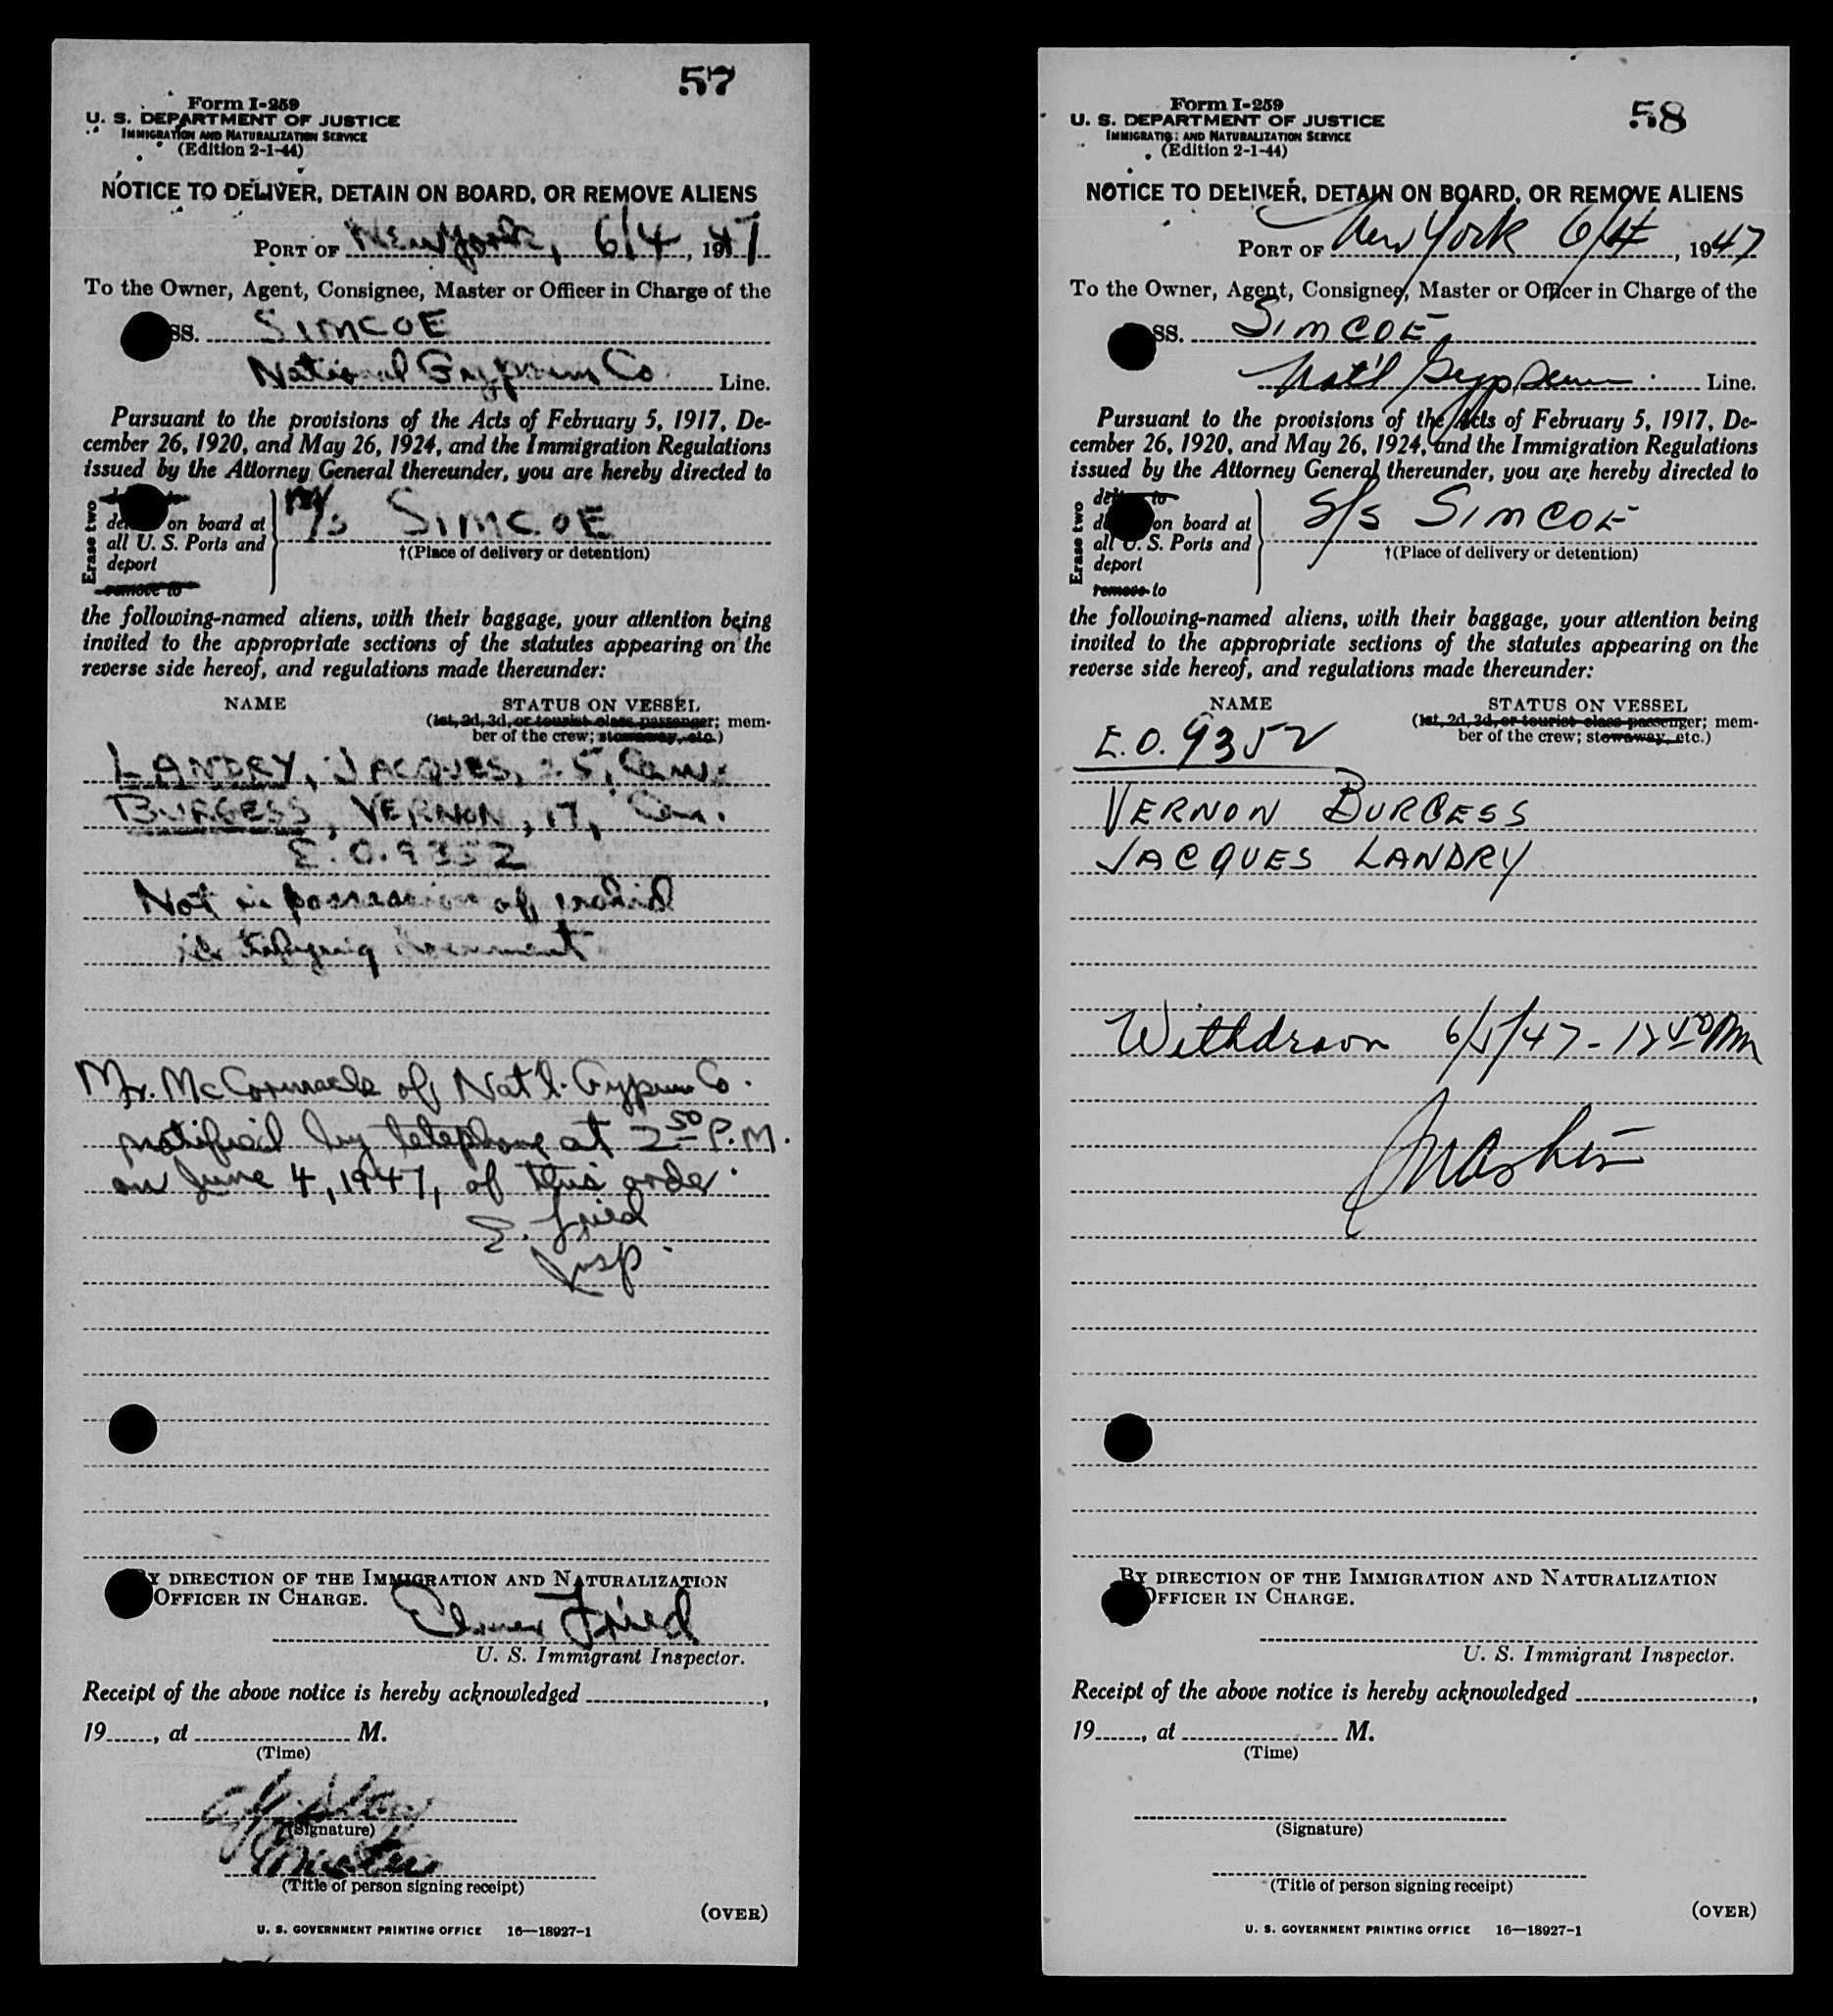 57
Form I-259
U. S. DEPARTMENT OF JUSTICE
IMMIGRATION AND NATURALIZATION SERVICE
(Edition 2-1-44)
NOTICE TO DELIVER, DETAIN ON BOARD, OR REMOVE ALIENS
PORT OF New York, 6/4, 1947
To the Owner, Agent, Consignee, Master or Officer in Charge of the
SS. SIMCOE
National Gypsum Co Line.
Pursuant to the provisions of the Acts of February 5, 1917, De-
cember 26, 1920, and May 26, 1924, and the Immigration Regulations
issued by the Attorney General thereunder, you are hereby directed to
Erase two
on board at
all U. S. Ports and
deport
remove to
M/S SIMCOE
†(Place of delivery or detention)
the following-named aliens, with their baggage, your attention being
invited to the appropriate sections of the statutes appearing on the
reverse side hereof, and regulations made thereunder:
NAME STATUS ON VESSEL
(1st, 2d, 3d, or tourist class passenger; mem-
ber of the crew; stowaway, etc.)
LANDRY, JACQUES, 25, Can.
BURGESS, VERNON, 17, Can.
E.O. 9352
Not in possession of valid
identifying document
Mr. McCormack of Nat'l. Gypsum Co.
notified by telephone at 2 50 P.M.
on June 4, 1947, of this order.
E. Fried
Insp.
BY DIRECTION OF THE IMMIGRATION AND NATURALIZATION
OFFICER IN CHARGE.
Elmer Fried
U. S. Immigrant Inspector.
Receipt of the above notice is hereby acknowledged ,
19 , at M.
(Time)
(Signature)
Master
(Title of person signing receipt)
(OVER)
U. S. GOVERNMENT PRINTING OFFICE 16—18927-1
58
Form I-259
U. S. DEPARTMENT OF JUSTICE
IMMIGRATION AND NATURALIZATION SERVICE
(Edition 2-1-44)
NOTICE TO DELIVER, DETAIN ON BOARD, OR REMOVE ALIENS
PORT OF New York 6/4, 1947
To the Owner, Agent, Consignee, Master or Officer in Charge of the
SS. SIMCOE
Nat'l Gypsum Line.
Pursuant to the provisions of the Acts of February 5, 1917, De-
cember 26, 1920, and May 26, 1924, and the Immigration Regulations
issued by the Attorney General thereunder, you are hereby directed to
Erase two
on board at
all U. S. Ports and
deport
remove to
S/S SIMCOE
†(Place of delivery or detention)
the following-named aliens, with their baggage, your attention being
invited to the appropriate sections of the statutes appearing on the
reverse side hereof, and regulations made thereunder:
NAME STATUS ON VESSEL
(1st, 2d, 3d, or tourist class passenger; mem-
ber of the crew; stowaway, etc.)
E.O. 9352
VERNON BURGESS
JACQUES LANDRY
Withdrawn 6/5/47
BY DIRECTION OF THE IMMIGRATION AND NATURALIZATION
OFFICER IN CHARGE.
U. S. Immigrant Inspector.
Receipt of the above notice is hereby acknowledged ,
19 , at M.
(Time)
(Signature)
(Title of person signing receipt)
(OVER)
U. S. GOVERNMENT PRINTING OFFICE 16—18927-1